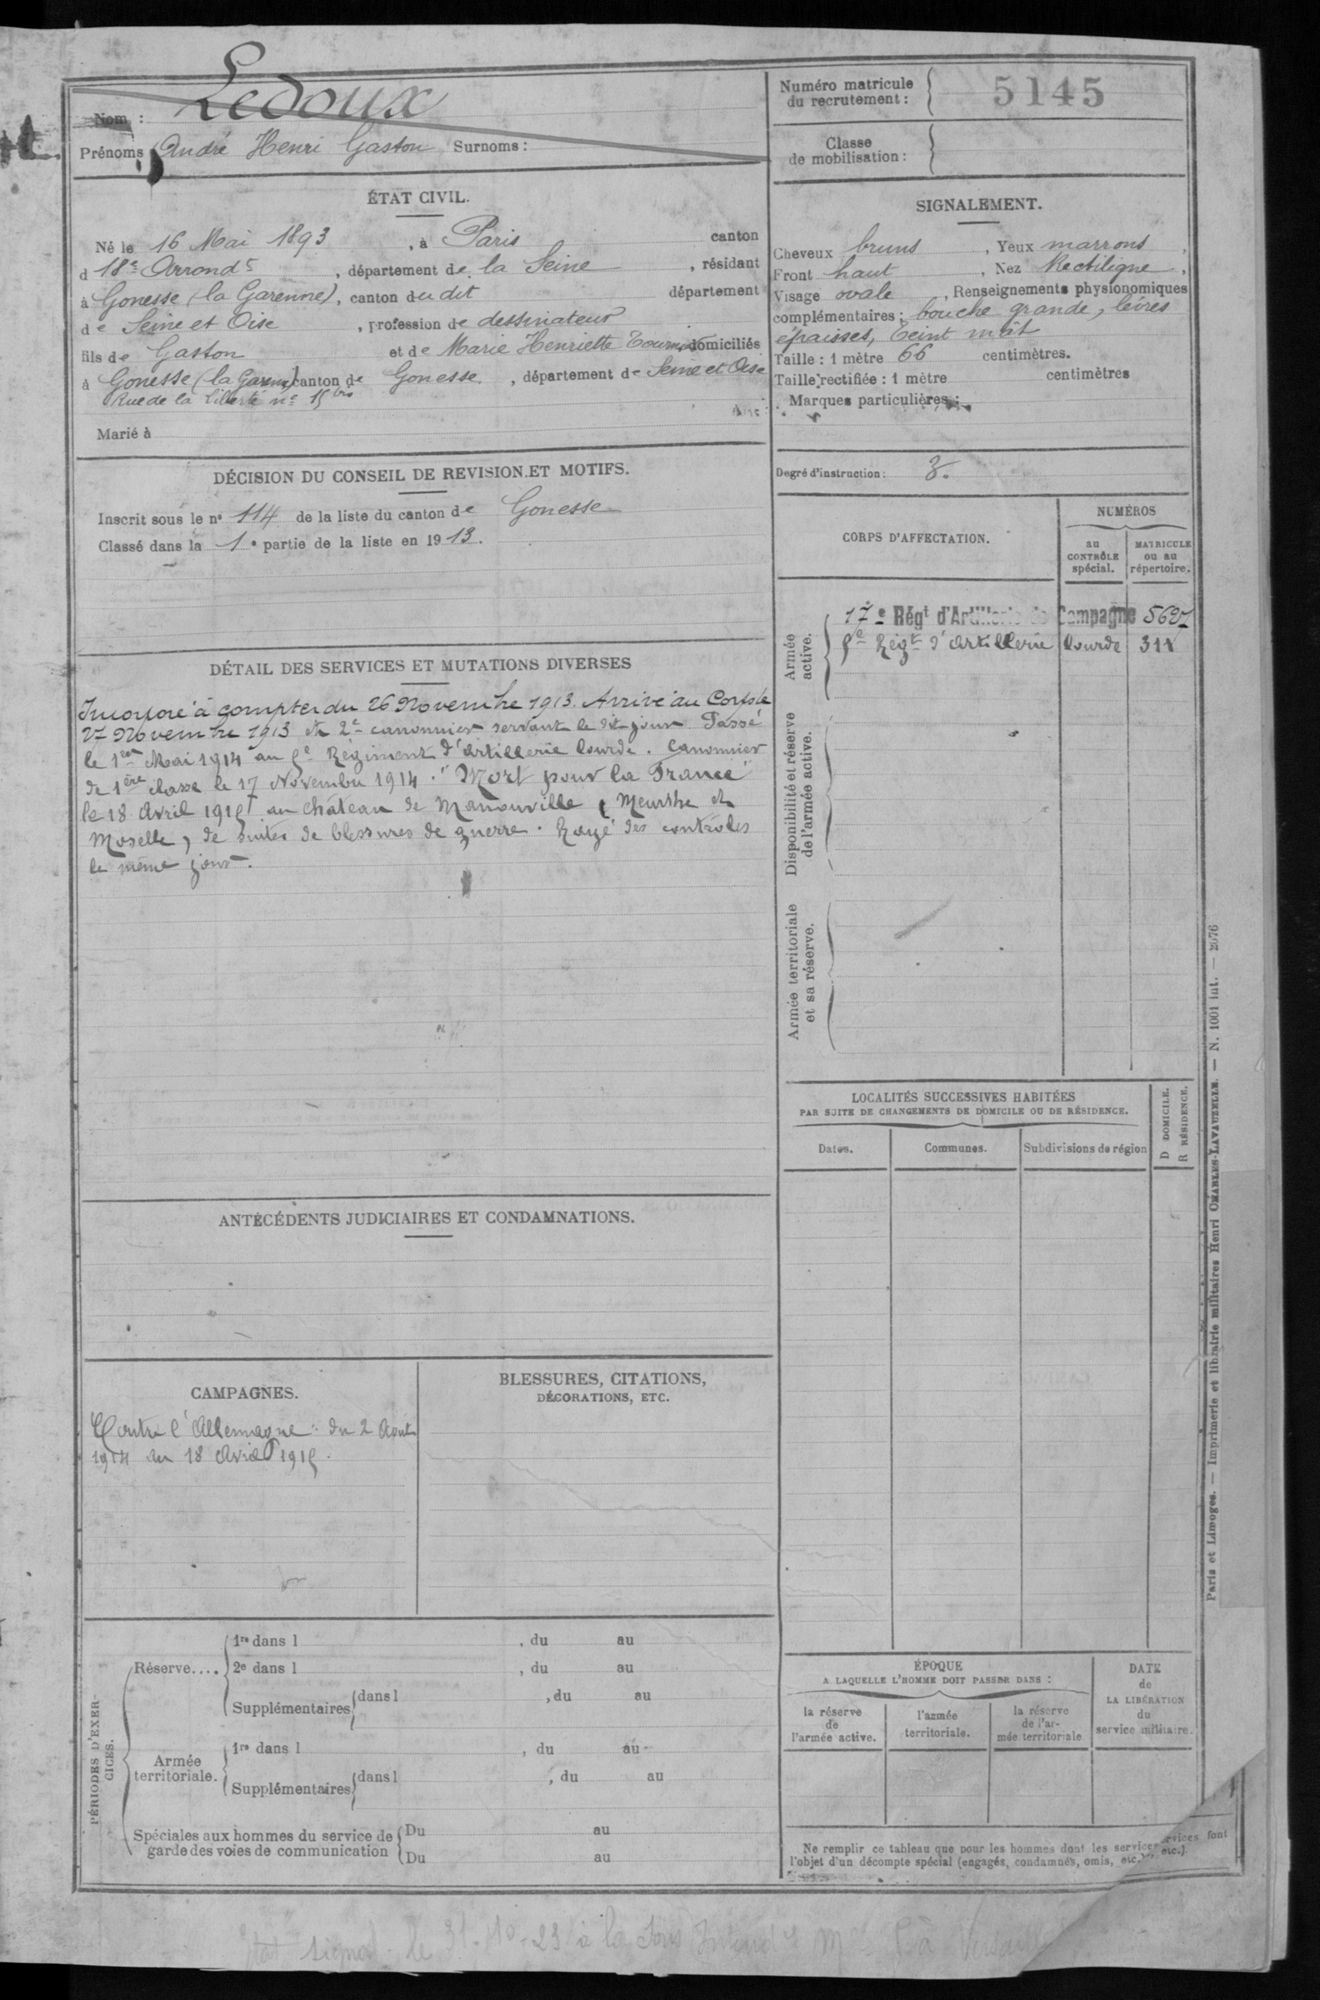 Nom : Ledoux
Prénoms André Henri Gaston Surnoms :
Numéro matricule du recrutement : 5145
Classe de mobilisation :
ÉTAT CIVIL.
Né le 16 Mai 1893, à Paris canton
d 18e Arrondt, département de la Seine, résidant
à Gonesse (la Garenne), canton du dit département
de Seine et Oise, profession de dessinateur
fils de Gaston et de Marie Henriette domiciliés
à Gonesse (la Garenne) canton de Gonesse, département de Seine et Oise
Rue de la Liberté no 15 bis
Marié à
SIGNALEMENT.
Cheveux bruns, Yeux marrons,
Front haut, Nez Rectiligne,
Visage ovale, Renseignements physionomiques
complémentaires : bouche grande, lèvres
épaisses, teint mât
Taille : 1 mètre 66 centimètres.
Taille rectifiée : 1 mètre centimètres
Marques particulières :
Degré d'instruction : 3.
DÉCISION DU CONSEIL DE REVISION ET MOTIFS.
Inscrit sous le no 114 de la liste du canton de Gonesse
Classé dans la 1e partie de la liste en 1913.
DÉTAIL DES SERVICES ET MUTATIONS DIVERSES
Incorporé à compter du 26 Novembre 1913. Arrivé au Corps le
27 Novembre 1913 et 2e canonnier servant le dit jour. Passé
le 1er Mai 1914 au Régiment d'Artillerie lourde. Canonnier
de 1ère classe le 17 Novembre 1914. "Mort pour la France"
le 18 Avril 1915 au château de Manonville (Meurthe et
Moselle) de suites de blessures de guerre. Rayé des contrôles
le même jour.
CORPS D'AFFECTATION.
NUMÉROS
au CONTRÔLE spécial.
MATRICULE ou au répertoire.
Armée active.
17e Régt d'Artillerie de Campagne
Régt d'Artillerie lourde
Disponibilité et réserve de l'armée active.
Armée territoriale et sa réserve.
LOCALITÉS SUCCESSIVES HABITÉES
PAR SUITE DE CHANGEMENTS DE DOMICILE OU DE RÉSIDENCE.
Dates. Communes. Subdivisions de région
D DOMICILE.
R RÉSIDENCE.
ANTÉCÉDENTS JUDICIAIRES ET CONDAMNATIONS.
CAMPAGNES.
Contre l'Allemagne : du 2 Août
1914 au 18 Avril 1915.
BLESSURES, CITATIONS,
DÉCORATIONS, ETC.
PÉRIODES D'EXERCICES.
Réserve....
1re dans l , du au
2e dans l , du au
Supplémentaires dans l , du au
Armée territoriale.
1re dans l , du au
Supplémentaires dans l , du au
Spéciales aux hommes du service de
garde des voies de communication
Du au
Du au
ÉPOQUE
A LAQUELLE L'HOMME DOIT PASSER DANS :
la réserve de l'armée active.
l'armée territoriale.
la réserve de l'armée territoriale
DATE de LA LIBÉRATION du service militaire.
Ne remplir ce tableau que pour les hommes dont les services font
l'objet d'un décompte spécial (engagés, condamnés, omis, etc.).
Paris et Limoges. — Imprimerie et librairie militaires Henri CHARLES-LAVAUZELLE. — N. 1001 int. — 2676